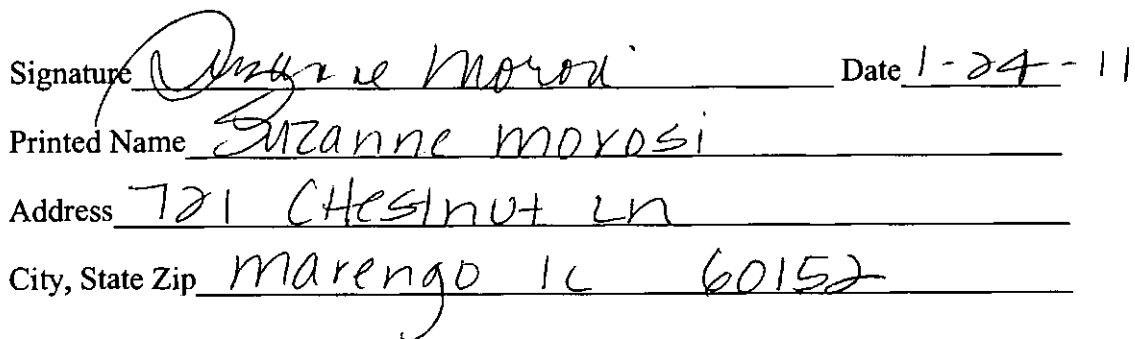 Signature Suzanne Morosi Date 1-24-11
Printed Name Suzanne morosi
Address 721 CHestnut Ln
City, State Zip Marengo IL 60152